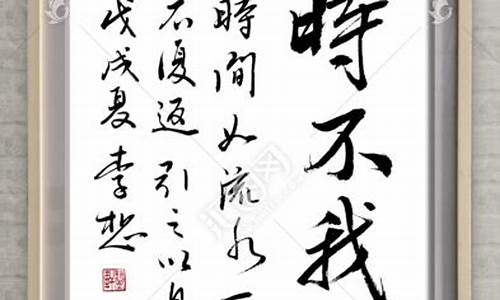 時不我
時間如流水一
不復返引之以自
戊戌夏李想